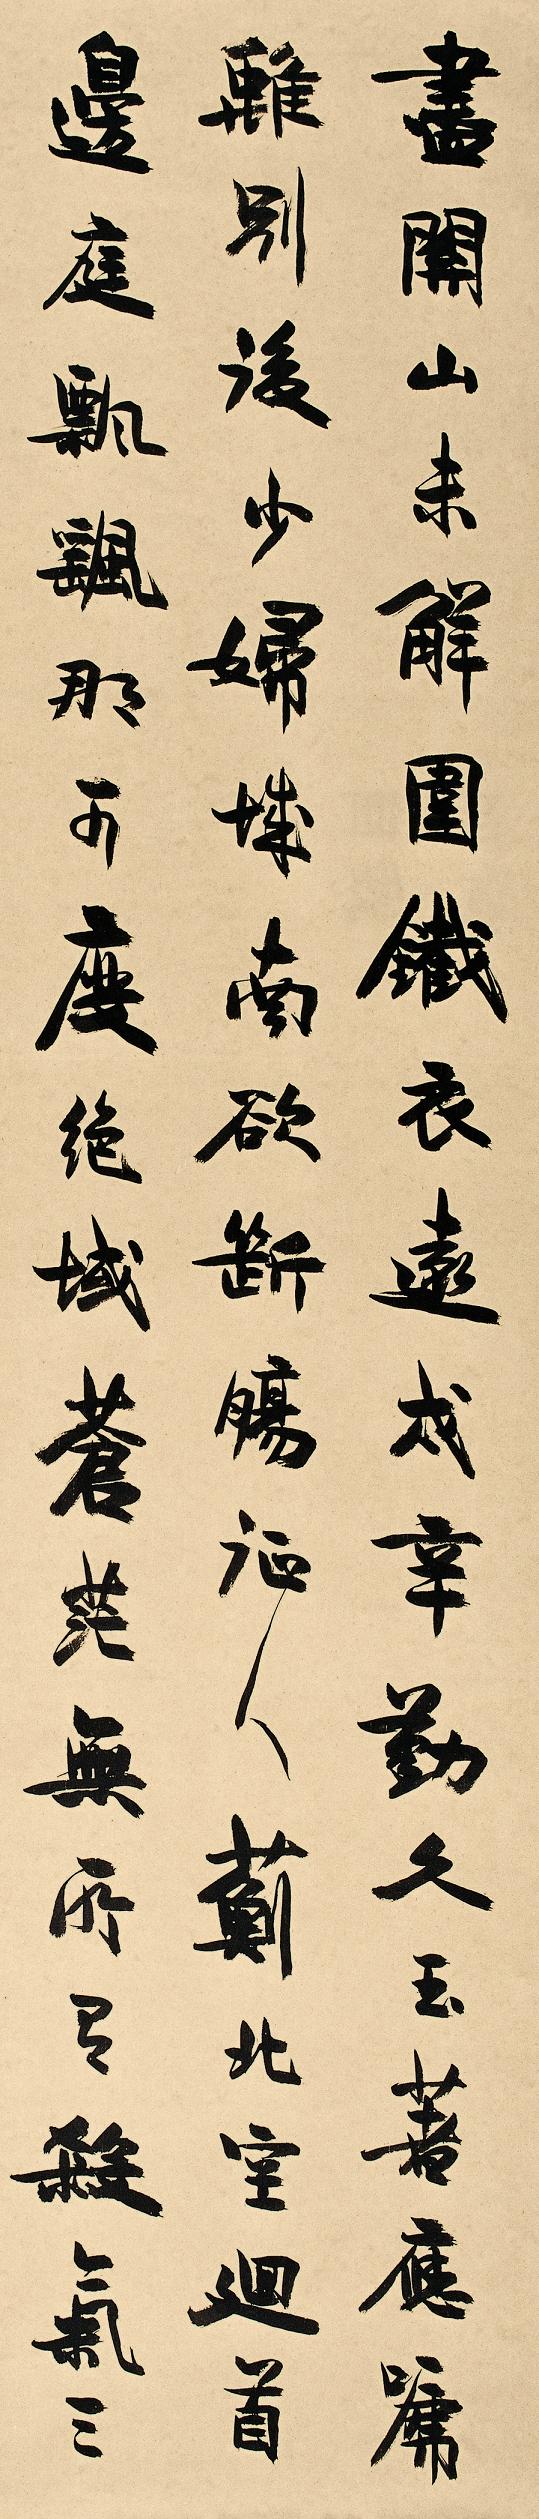 盡關山未解圍鐵衣遠戍辛勤久玉著應嗁
離別後少婦城南欲斷腸征人薊北空迴首
邊庭飄颻那可度絕域蒼茫無所有殺氣三